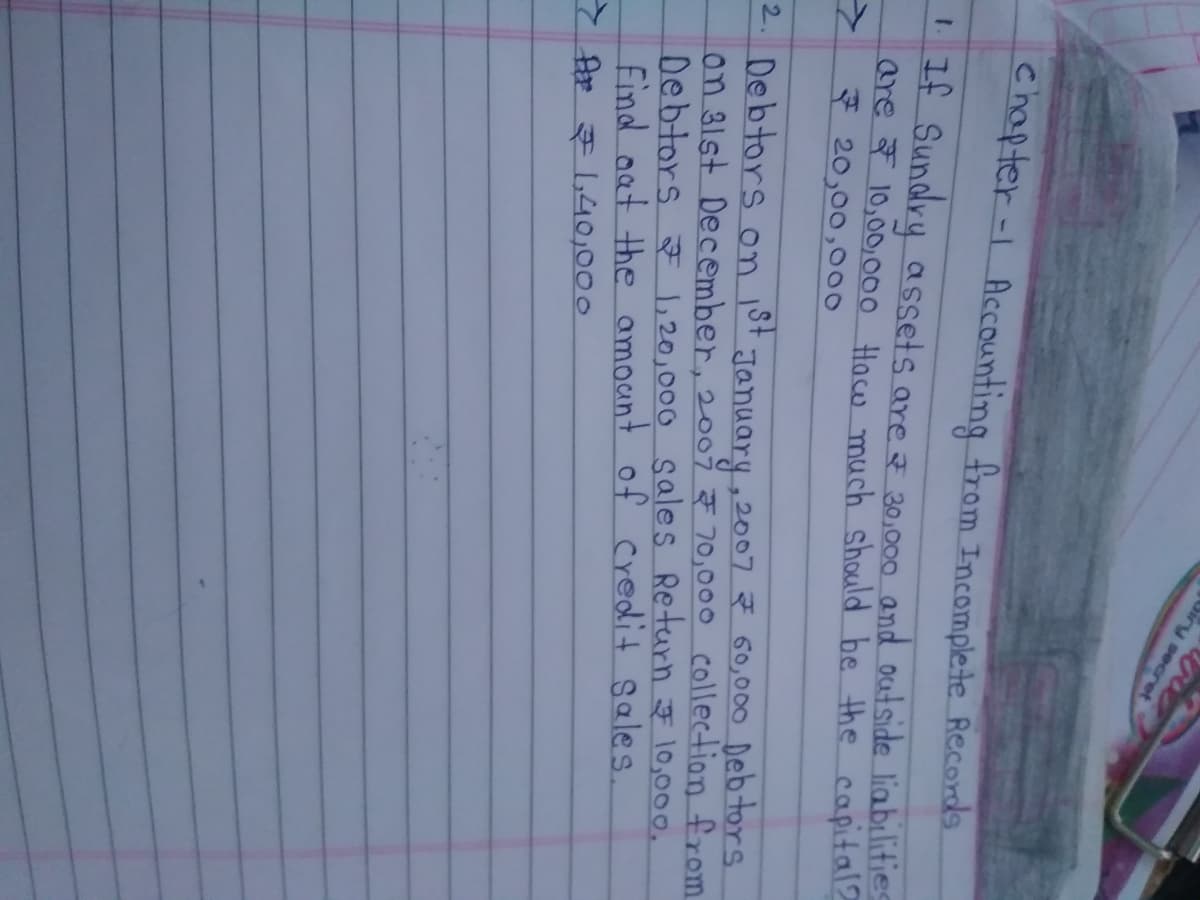 Chapter-1 Accounting from Incomplete Records
1. If Sundry assets are ₹ 30,000 and outside liabilities
are ₹ 10,00,000 How much should be the capital?
→ ₹ 20,00,000
2. Debtors on 1st January, 2007 ₹ 60,000 Debtors
on 31st December, 2007 ₹ 70,000 collection from
Debtors ₹ 1,20,000 Sales Return ₹ 10,000.
Find out the amount of credit sales.
→ ₹ 1,40,000
secret